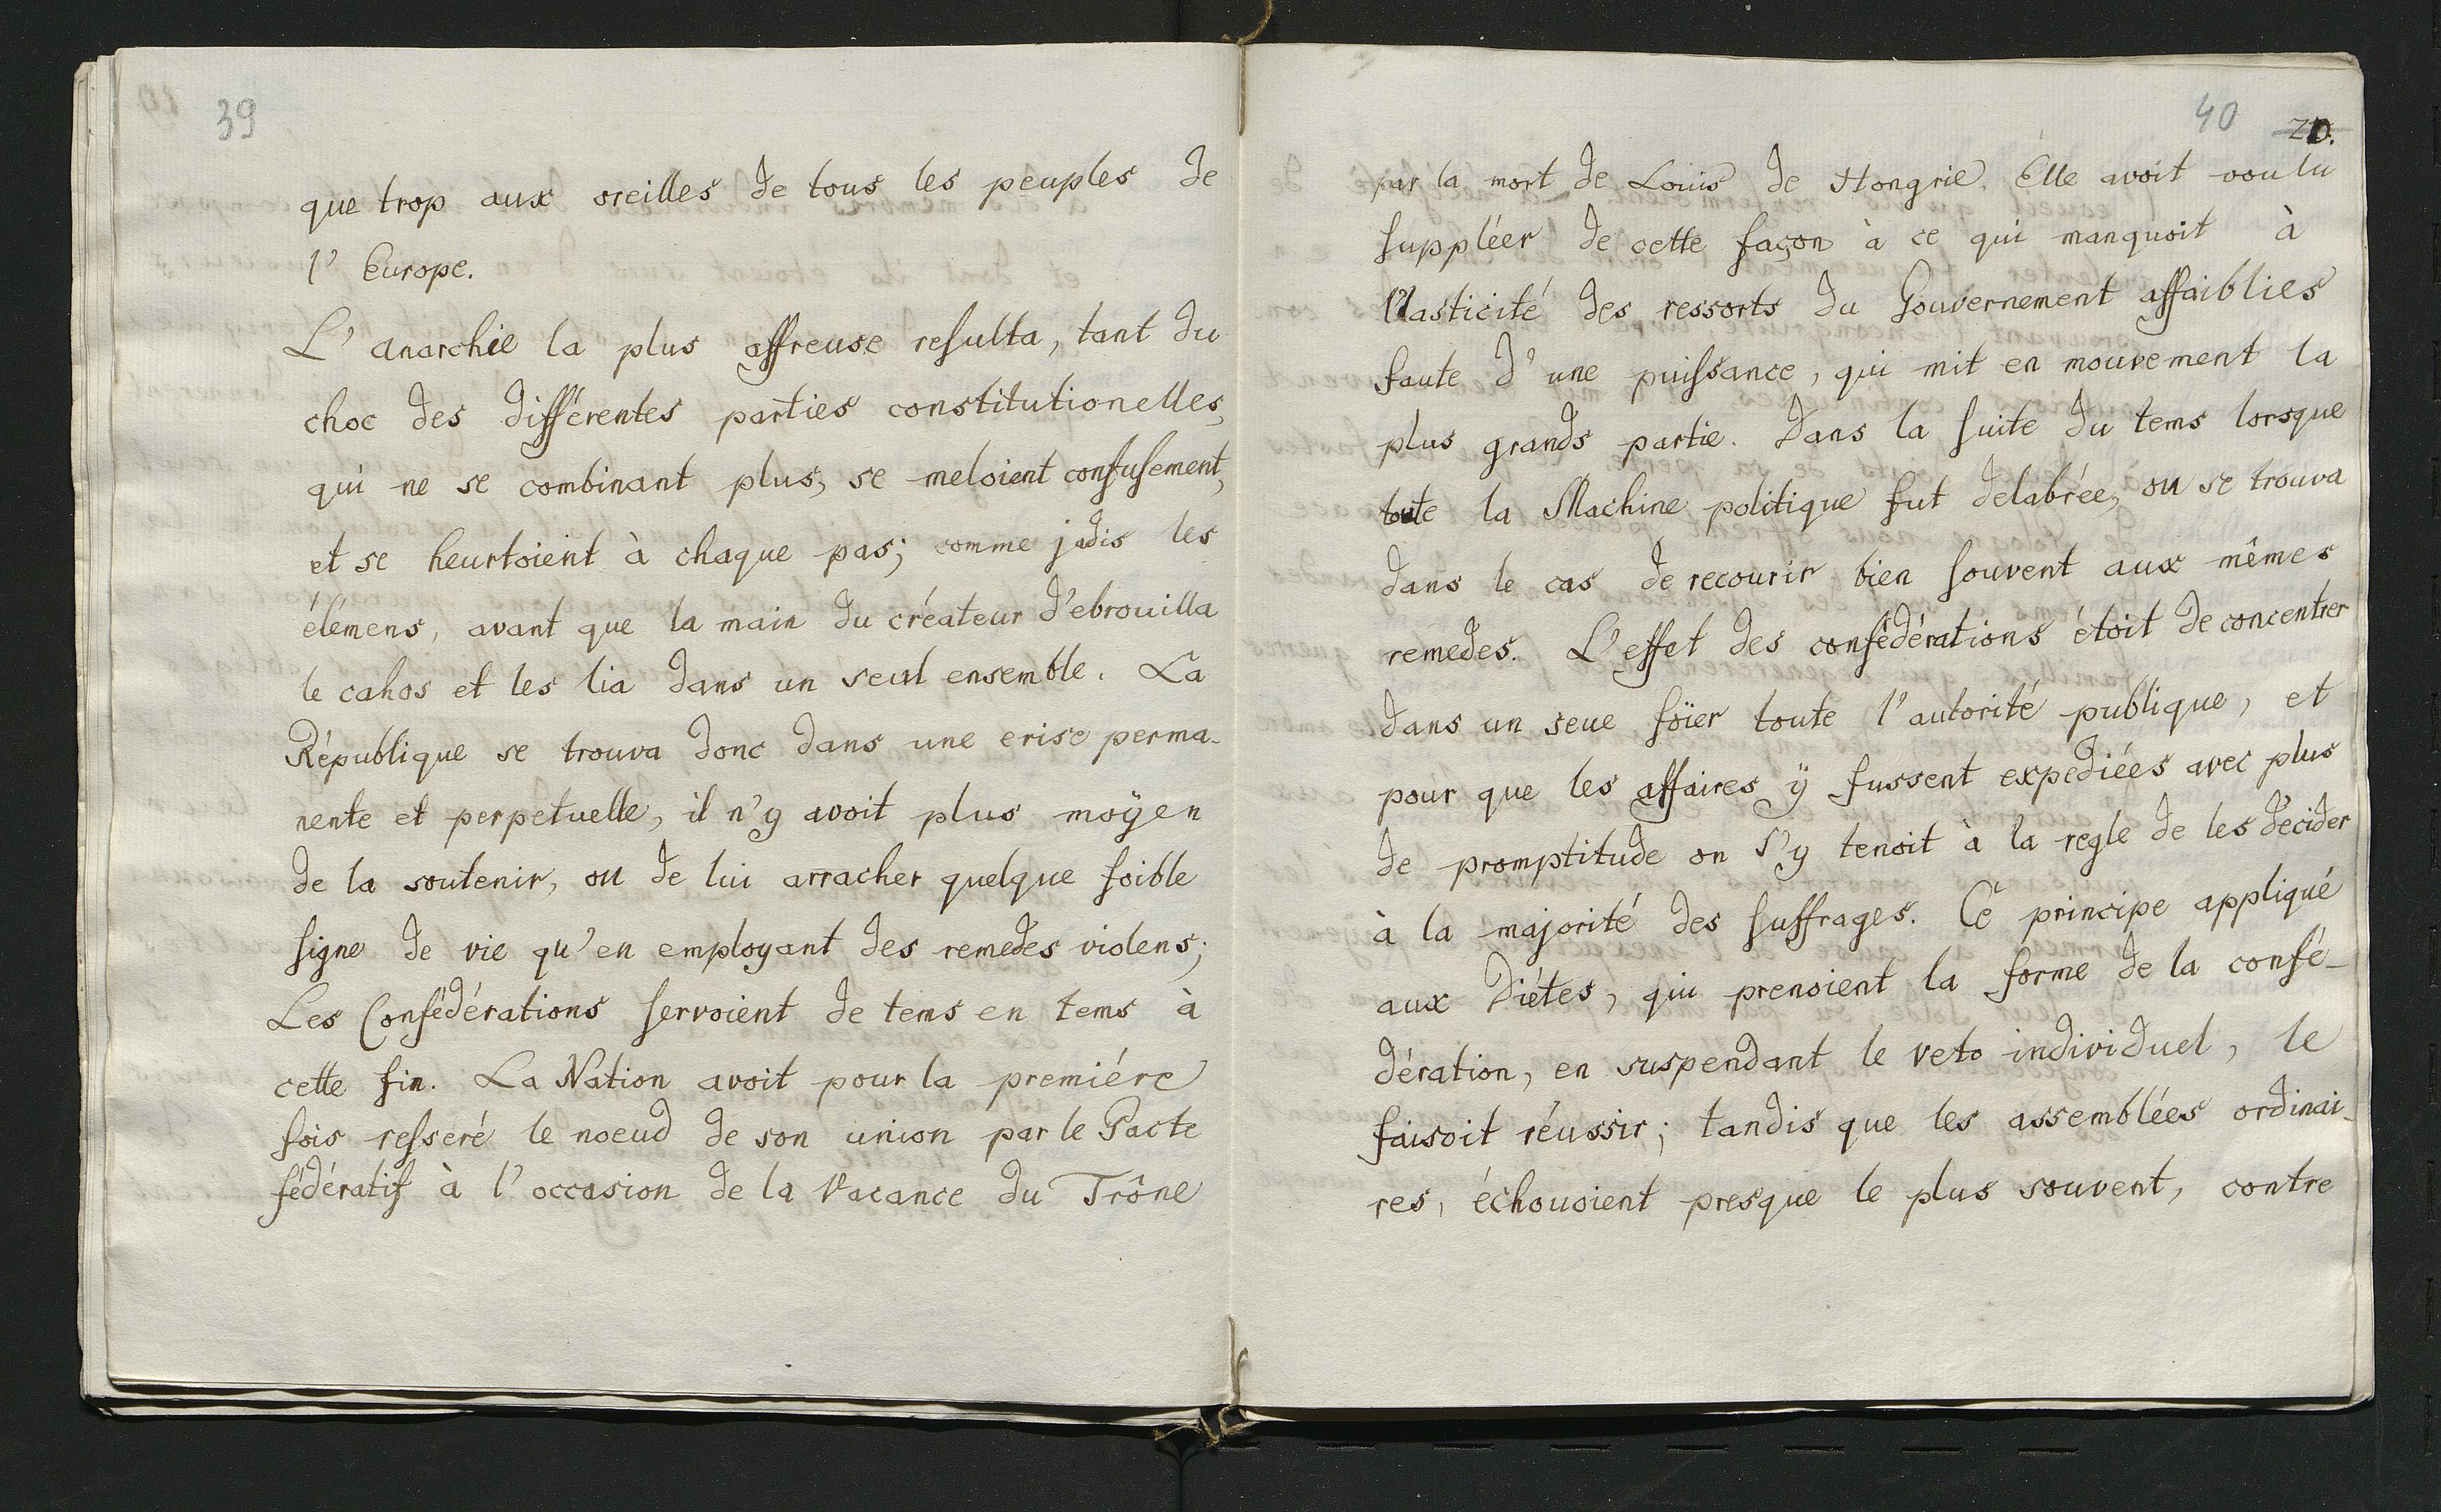 39
que trop aux oreilles de tous les peuples de
l' Europe.
L' anarchie la plus affreuse resulta, tant du
choc des différentes parties constitutionelles,
qui ne se combinant plus, se meloient confusement,
et se heurtoient à chaque pas; comme jadis les
élémens, avant que la main du créateur d'ebrouilla
le cahos et les lia dans un seul ensemble. La
République se trouva donc dans une crise perma-
nente et perpetuelle, il n'y avoit plus moÿen
de la soutenir, ou de lui arracher quelque foible
signe de vie qu'en employant des remedes violens;
Les Confédérations servoient de tems en tems à
cette fin. La Nation avoit pour la premiére
fois resseré le noeud de son union par le Pacte
fédératif à l' occasion de la Vacance du Trône
40
20.
par la mort de Louis de Hongrie. Elle avoit voulu
suppléer de cette façon à ce qui manquoit à
l'lasticité des ressorts du Gouvernement affaiblies
faute d' une puissance, qui mit en mouvement la
plus grands partie. Dans la suite du tems lorsque
toute la Machine politique fut delabrée, ou se trouva
dans le cas de recourir bien souvent aux mêmes
remedes. L'effet des confédérations étoit de concentrer
dans un seue foïer toute l'autorité publique, et
pour que les affaires ÿ fussent expediées avec plus
de promptitude on s'y tenoit à la regle de les décider
à la majorité des suffrages. Ce principe appliqué
aux Diétes, qui prenoient la forme de la confé-
dération, en suspendant le veto individuel, le
faisoit réussir; tandis que les assemblées ordinai-
res, échouoient presque le plus souvent, contre